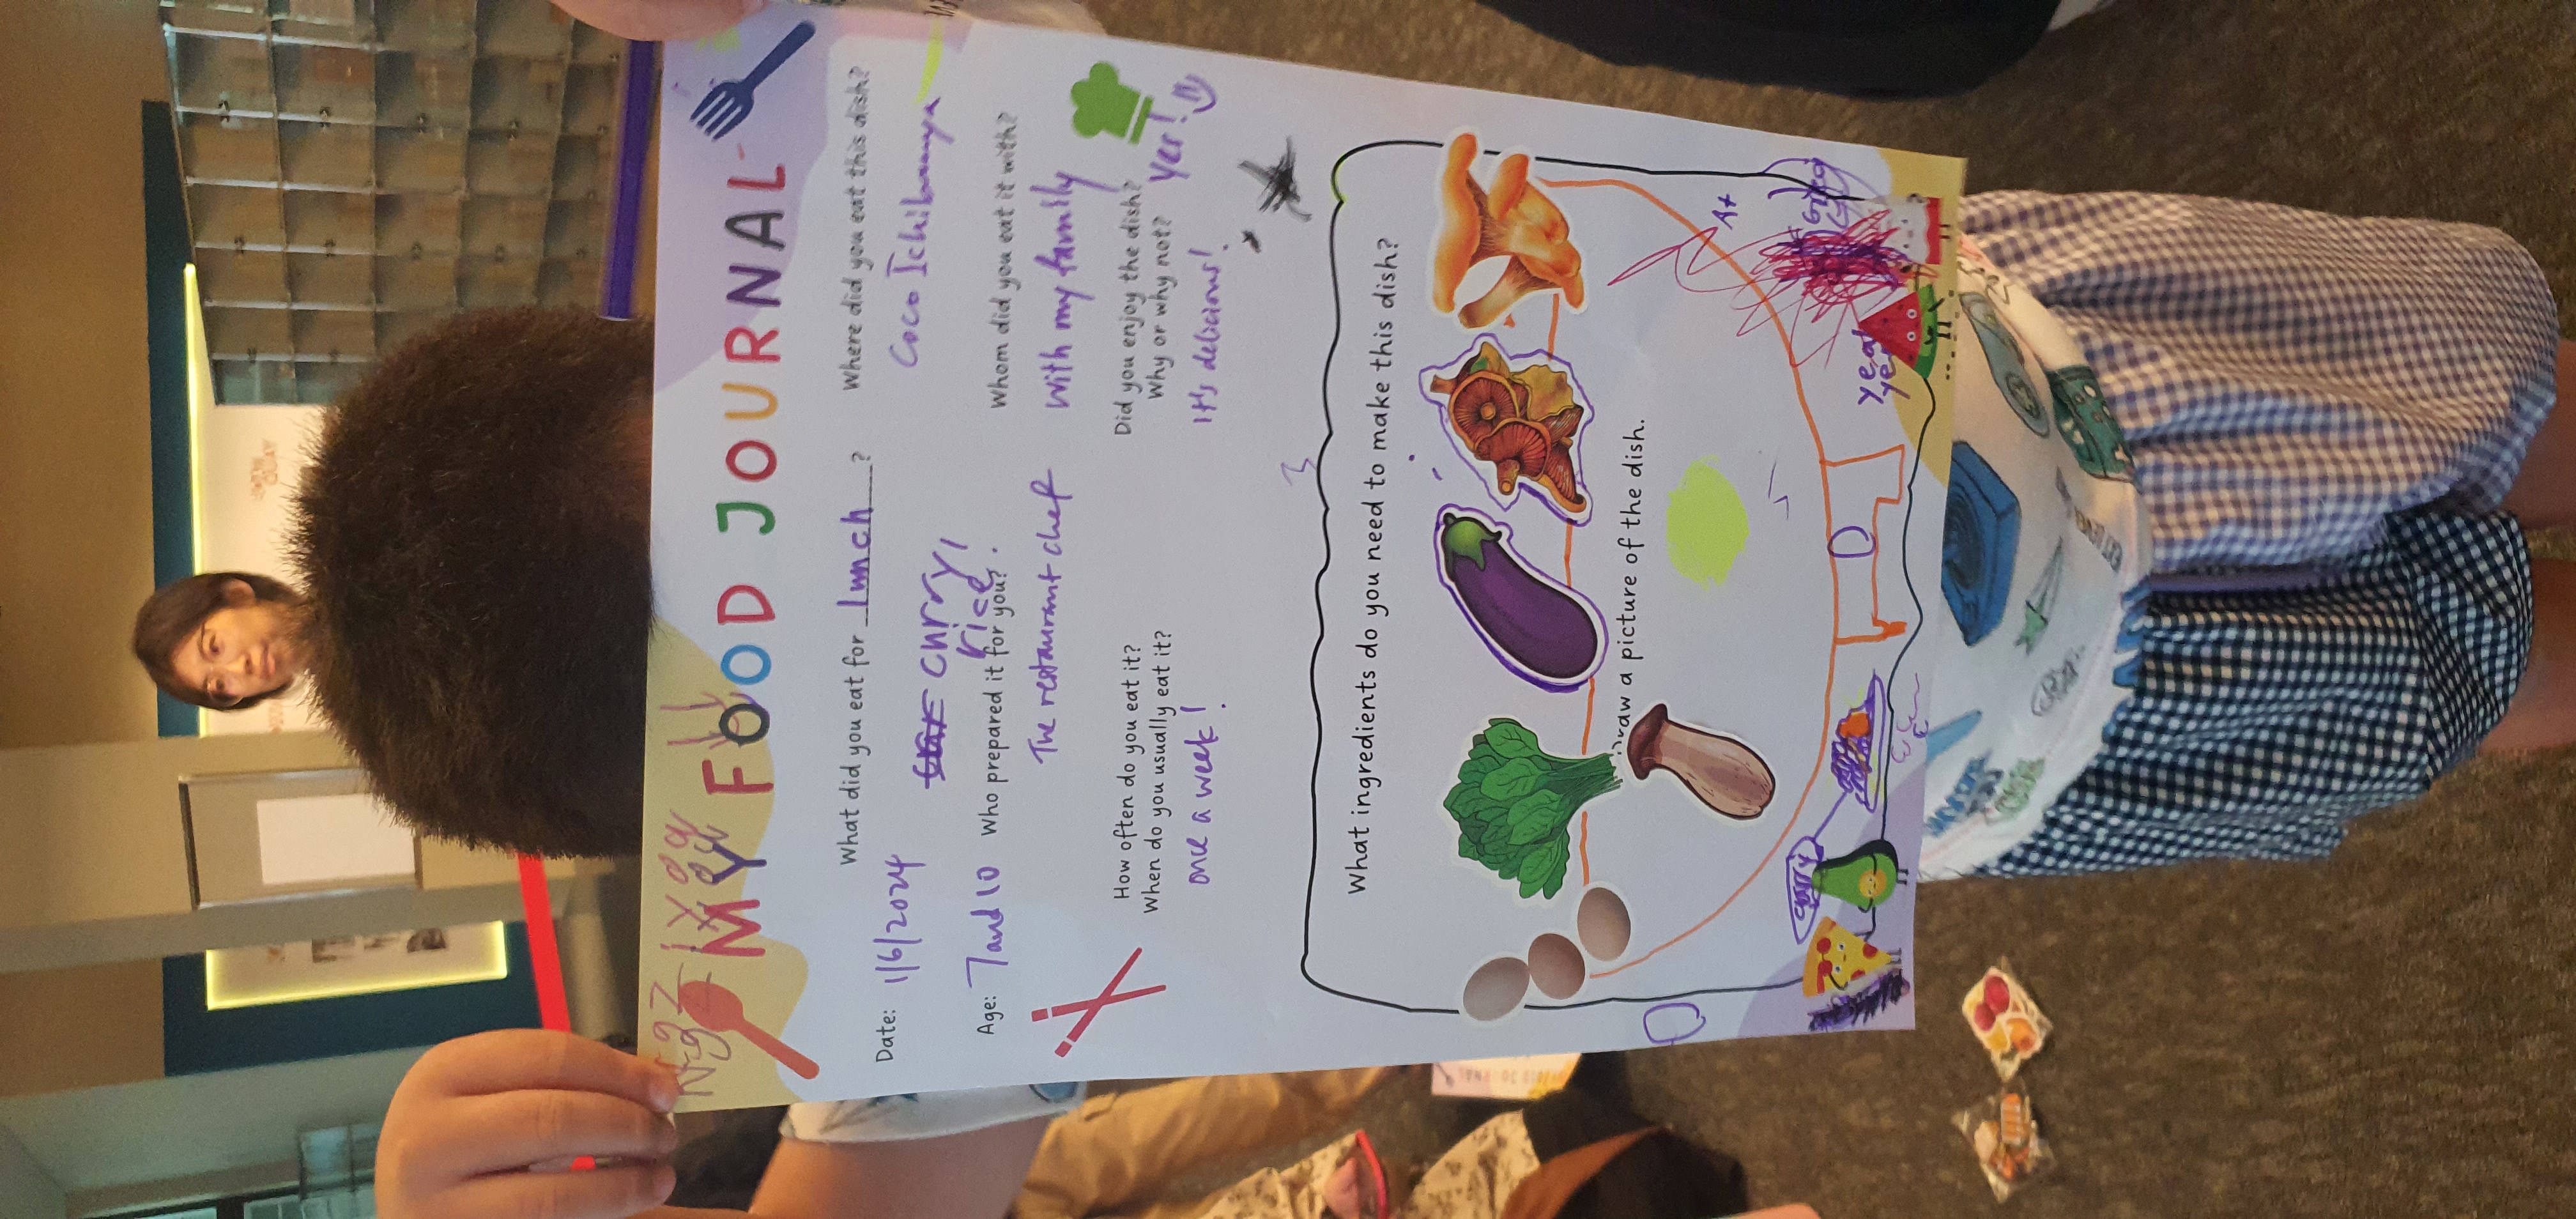 MY FOOD JOURNAL
Date: 1/6/2024
What did you eat for lunch?
curry rice.
Where did you eat this dish?
Coco Ichibanya
Age: 7 and 10
Who prepared it for you?
The restaurant chef
Whom did you eat it with?
with my family
How often do you eat it?
When do you usually eat it?
one a week!
Did you enjoy the dish?
Why or why not?
Yes!
It's delicious!
What ingredients do you need to make this dish?
a picture of the dish.
At
curry
yeah